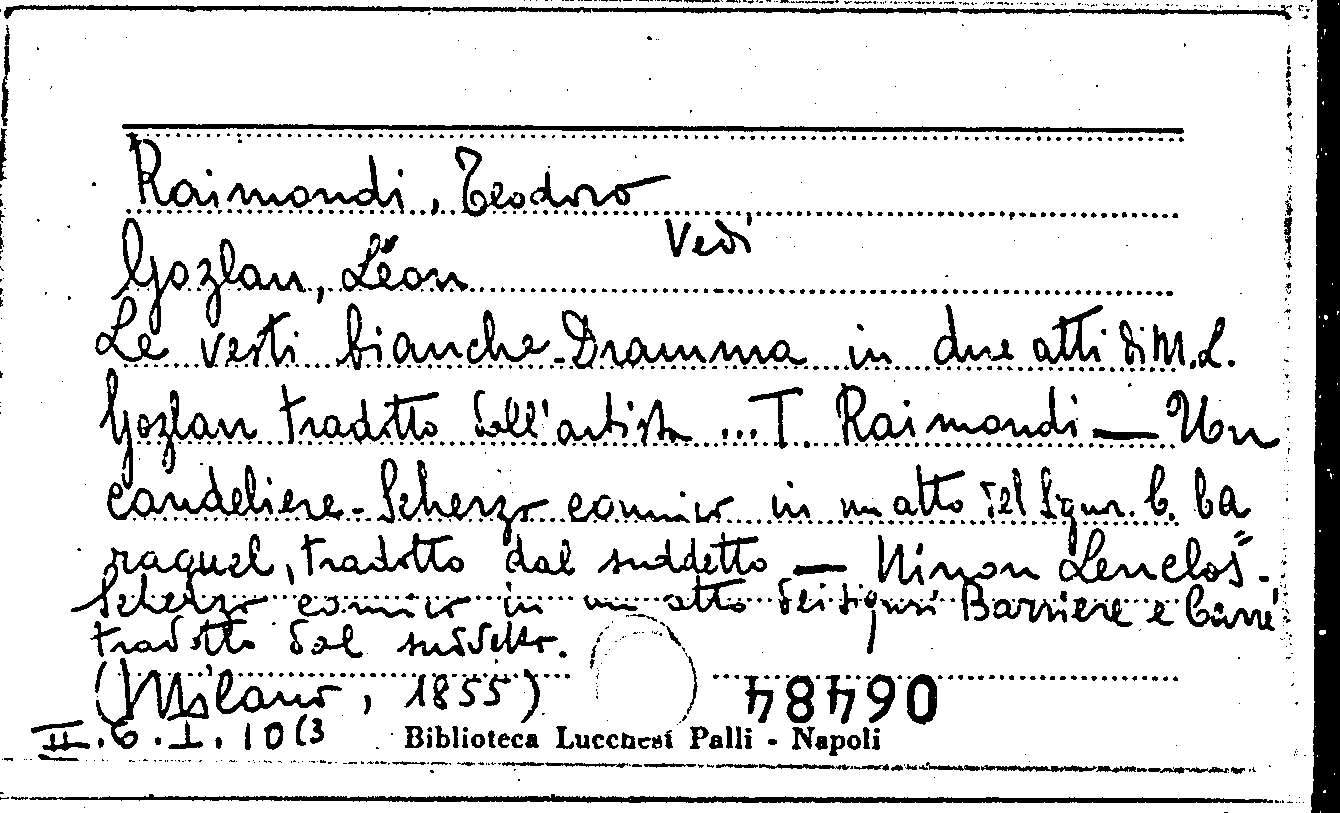 Raimondi, Teodoro
Vedi
Gozlan, Léon
Le vesti bianche - Dramma in due atti di M. L.
Gozlan tradotto dall'artista ... T. Raimondi — Un
candeliere - Scherzo comico in un atto del Signor. C. Ca
raguel, tradotto dal suddetto — Ninon Lenclos -
Scherzo comico in un atto dei signori Barriere e Carré
tradotto dal suddetto.
(Milano, 1855)
06484
II. 6. I. 10 (3
Biblioteca Lucchesi Palli - Napoli